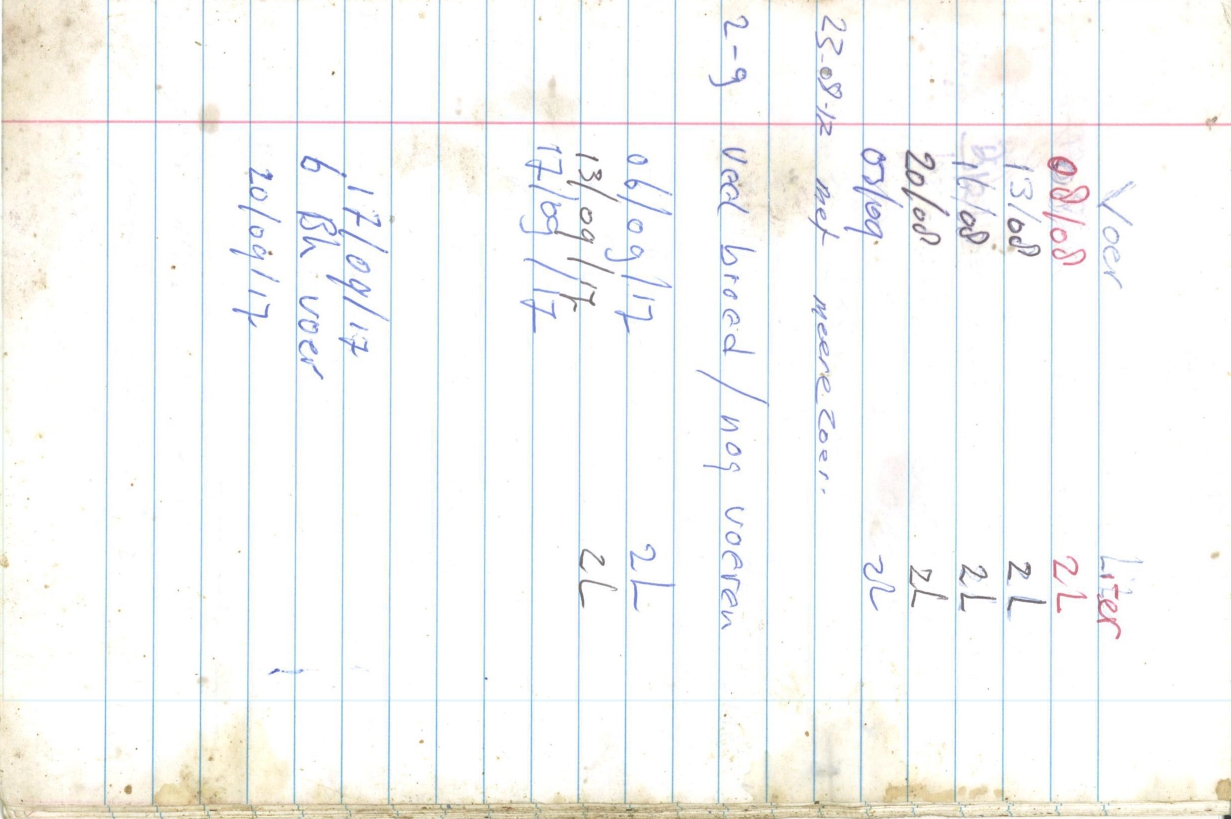 Voer Liter
08/08 2L
13/08 2L
16/08 2L
20/08 2L
03/09 2L
23-08-17 met
2-9 veel broed / nog voeren
06/09/17 2L
13/09/17 2L
17/09/17
17/09/17
6 Bh voer
20/09/17